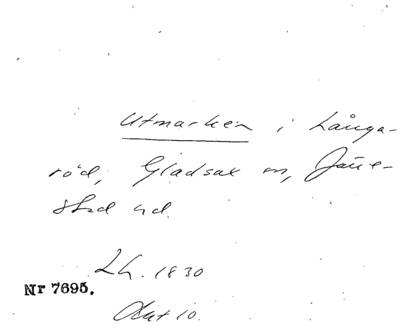 Utmarken i Långa-
röd, Gladsax sn, Järre-
stad hd.
Lh. 1830
Nr 7695.
Okt 10.